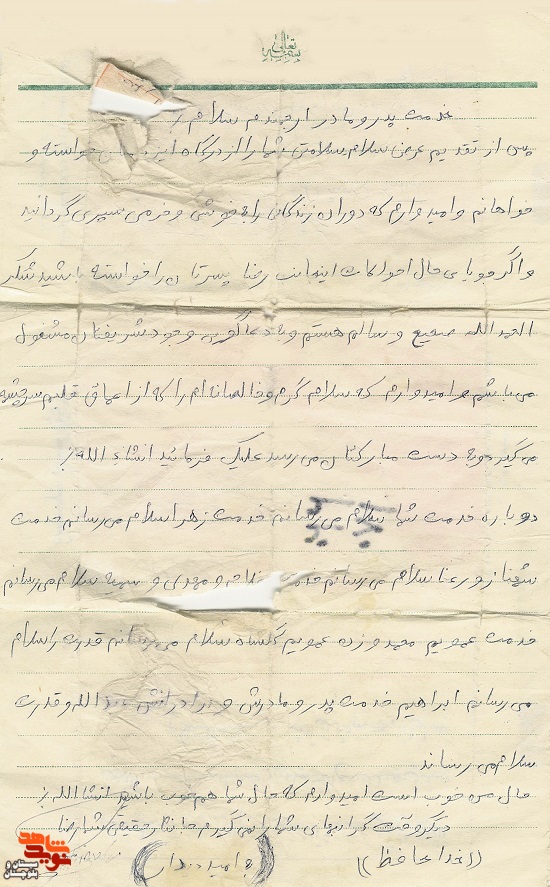 بسمه تعالی
خدمت پدر و مادر ارجمندم سلام
پس از تقدیم عرض سلام سلامتی شما را از درگاه خواسته و
خواهانم و امیدوارم که دوران زندگانی را بخوشی و خرمی سپری گردانید
و اگر جویای حال احوالات اینجانب رضا پسرتان را خواسته باشید شکر
الحمدالله صحیح و سالم هستم و به دعاگویی وجود شریفتان مشغول
می باشم و امیدوارم که سلام گرم و خالصانه ام را که از اعماق قلبم سرچشمه
می گیرد به دست مبارکتان می رسد علیک فرمائید انشاء الله
دوباره خدمت شما سلام می رسانم خدمت زهرا سلام می رسانم خدمت
شهناز و رعنا سلام می رسانم و مهدی و سمیه سلام می رسانم
خدمت عمویم محمد و زن عمویم سلام می رسانم قدرت را سلام
می رسانم ابراهیم خدمت پدر و مادرش و برادرانش عبدالله و قدرت
سلام می رساند
حال من خوب است امیدوارم که حال شما هم خوب باشد انشا الله
دیگر وقت گرانبهای شما را نمی گیرم رضا
((خدا حافظ)) (به امید دیدار)
نوید شاهد